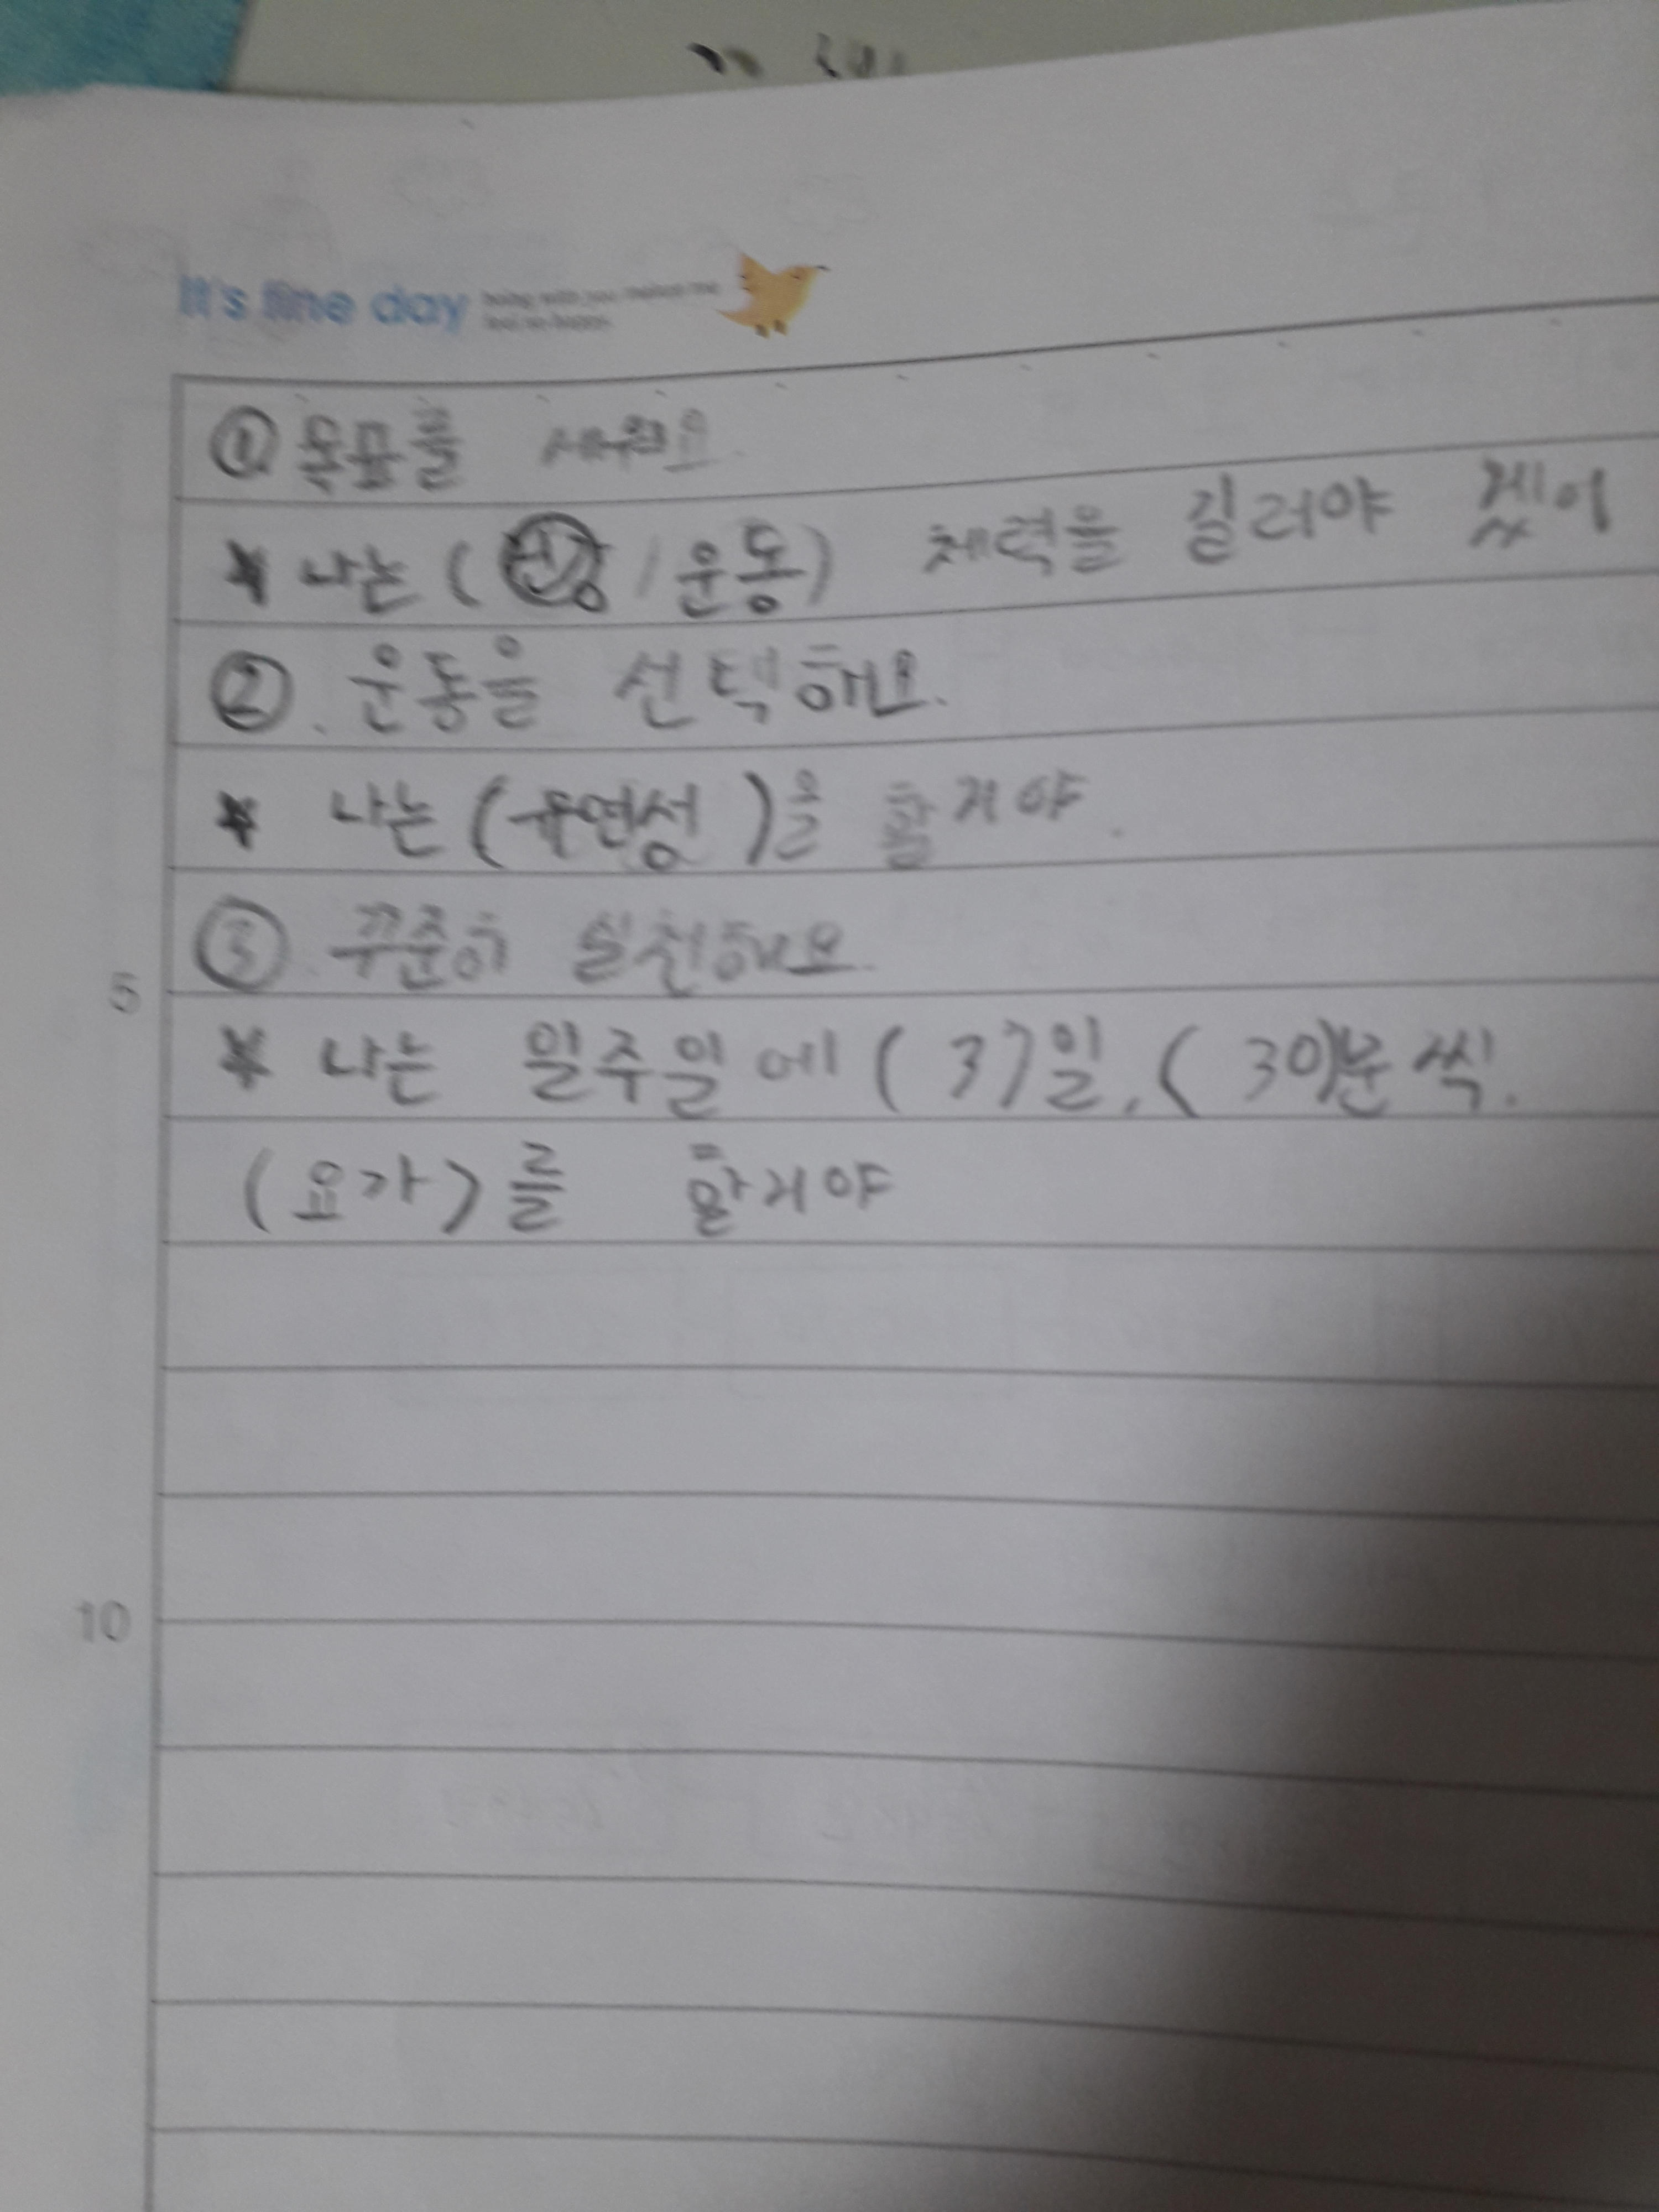 It's fine day
being with you makes me
feel so happy
① 목표를 세워요.
* 나는 ( 건강 / 운동) 체력을 길러야 겠어
② . 운동을 선택해요.
* 나는 (유연성 )을 할거야.
5
③ . 꾸준히 실천해요.
* 나는 일주일에 ( 3)일, ( 30)분씩.
(요가)를 할거야
10